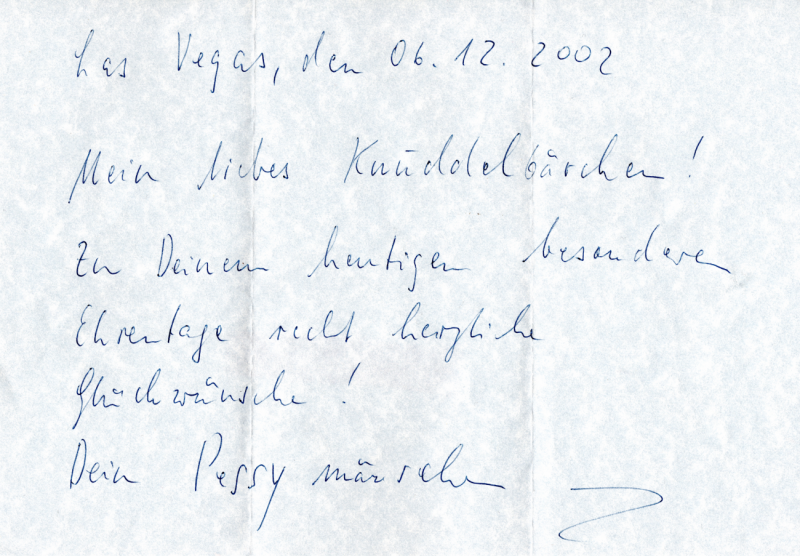 Las Vegas, den 06. 12. 2002
Mein liebes Knuddelbärchen!
Zu Deinem heutigen besonderen
Ehrentage recht herzliche
Glückwünsche!
Dein